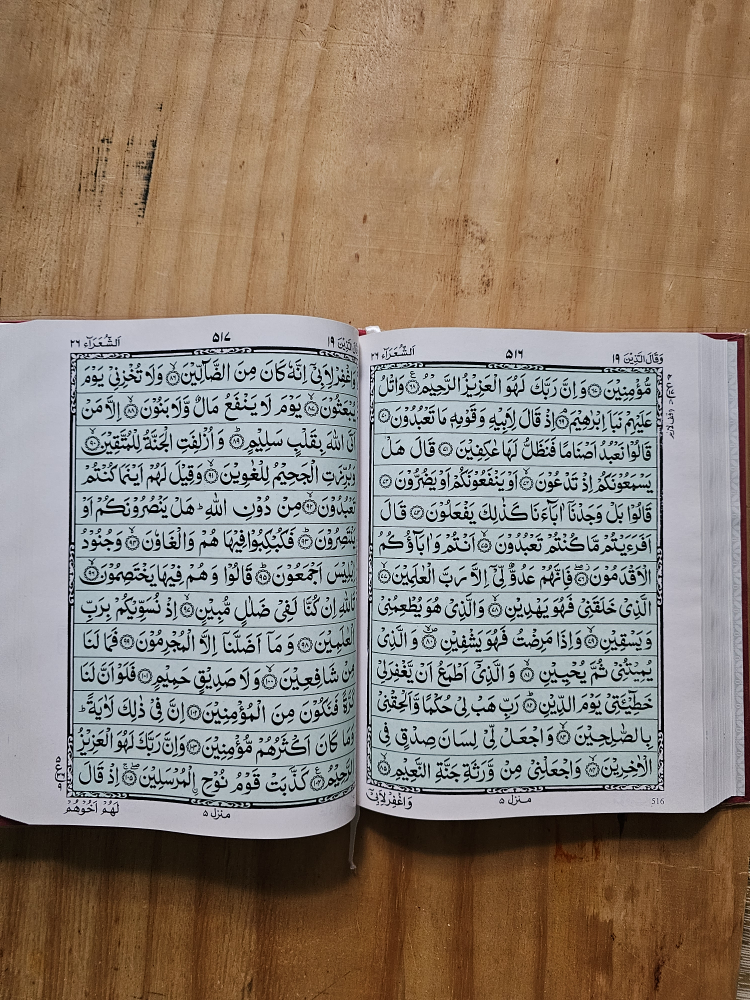 وَقَالَ الَّذِيْنَ ١٩
٥١٦
اَلشُّعَرَآء ٢٦
مُّؤْمِنِيْنَ ﴿٦٧﴾ وَاِنَّ رَبَّكَ لَهُوَ الْعَزِيْزُ الرَّحِيْمُ ﴿٦٨﴾ وَاتْلُ
عَلَيْهِمْ نَبَاَ اِبْرٰهِيْمَ ﴿٦٩﴾ اِذْ قَالَ لِاَبِيْهِ وَقَوْمِهٖ مَا تَعْبُدُوْنَ ﴿٧٠﴾
قَالُوْا نَعْبُدُ اَصْنَامًا فَنَظَلُّ لَهَا عٰكِفِيْنَ ﴿٧١﴾ قَالَ هَلْ
يَسْمَعُوْنَكُمْ اِذْ تَدْعُوْنَ ﴿٧٢﴾ اَوْ يَنْفَعُوْنَكُمْ اَوْ يَضُرُّوْنَ ﴿٧٣﴾
قَالُوْا بَلْ وَجَدْنَاۤ اٰبَآءَنَا كَذٰلِكَ يَفْعَلُوْنَ ﴿٧٤﴾ قَالَ
اَفَرَءَيْتُمْ مَّا كُنْتُمْ تَعْبُدُوْنَ ﴿٧٥﴾ اَنْتُمْ وَاٰبَآؤُكُمُ
الْاَقْدَمُوْنَ ﴿٧٦﴾ فَاِنَّهُمْ عَدُوٌّ لِّيْۤ اِلَّا رَبَّ الْعٰلَمِيْنَ ﴿٧٧﴾
الَّذِيْ خَلَقَنِيْ فَهُوَ يَهْدِيْنِ ﴿٧٨﴾ وَالَّذِيْ هُوَ يُطْعِمُنِيْ
وَيَسْقِيْنِ ﴿٧٩﴾ وَاِذَا مَرِضْتُ فَهُوَ يَشْفِيْنِ ﴿٨٠﴾ وَالَّذِيْ
يُمِيْتُنِيْ ثُمَّ يُحْيِيْنِ ﴿٨١﴾ وَالَّذِيْۤ اَطْمَعُ اَنْ يَّغْفِرَ لِيْ
خَطِيْٓـَٔتِيْ يَوْمَ الدِّيْنِ ﴿٨٢﴾ رَبِّ هَبْ لِيْ حُكْمًا وَّاَلْحِقْنِيْ
بِالصّٰلِحِيْنَ ﴿٨٣﴾ وَاجْعَلْ لِّيْ لِسَانَ صِدْقٍ فِي
الْاٰخِرِيْنَ ﴿٨٤﴾ وَاجْعَلْنِيْ مِنْ وَّرَثَةِ جَنَّةِ النَّعِيْمِ ﴿٨٥﴾
منزل ٥
وَاغْفِرْ لِاَبِيْۤ
516
١٩
٥١٧
اَلشُّعَرَآء ٢٦
وَاغْفِرْ لِاَبِيْۤ اِنَّهٗ كَانَ مِنَ الضَّآلِّيْنَ ﴿٨٦﴾ وَلَا تُخْزِنِيْ يَوْمَ
يُبْعَثُوْنَ ﴿٨٧﴾ يَوْمَ لَا يَنْفَعُ مَالٌ وَّلَا بَنُوْنَ ﴿٨٨﴾ اِلَّا مَنْ
اَتَى اللّٰهَ بِقَلْبٍ سَلِيْمٍ ﴿٨٩﴾ وَاُزْلِفَتِ الْجَنَّةُ لِلْمُتَّقِيْنَ ﴿٩٠﴾
وَبُرِّزَتِ الْجَحِيْمُ لِلْغٰوِيْنَ ﴿٩١﴾ وَقِيْلَ لَهُمْ اَيْنَمَا كُنْتُمْ
تَعْبُدُوْنَ ﴿٩٢﴾ مِنْ دُوْنِ اللّٰهِ ؕ هَلْ يَنْصُرُوْنَكُمْ اَوْ
يَنْتَصِرُوْنَ ﴿٩٣﴾ فَكُبْكِبُوْا فِيْهَا هُمْ وَالْغَاوٗنَ ﴿٩٤﴾ وَجُنُوْدُ
اِبْلِيْسَ اَجْمَعُوْنَ ﴿٩٥﴾ قَالُوْا وَهُمْ فِيْهَا يَخْتَصِمُوْنَ ﴿٩٦﴾
تَاللّٰهِ اِنْ كُنَّا لَفِيْ ضَلٰلٍ مُّبِيْنٍ ﴿٩٧﴾ اِذْ نُسَوِّيْكُمْ بِرَبِّ
الْعٰلَمِيْنَ ﴿٩٨﴾ وَمَاۤ اَضَلَّنَاۤ اِلَّا الْمُجْرِمُوْنَ ﴿٩٩﴾ فَمَا لَنَا
مِنْ شَافِعِيْنَ ﴿١٠٠﴾ وَلَا صَدِيْقٍ حَمِيْمٍ ﴿١٠١﴾ فَلَوْ اَنَّ لَنَا
كَرَّةً فَنَكُوْنَ مِنَ الْمُؤْمِنِيْنَ ﴿١٠٢﴾ اِنَّ فِيْ ذٰلِكَ لَاٰيَةً ؕ
وَمَا كَانَ اَكْثَرُهُمْ مُّؤْمِنِيْنَ ﴿١٠٣﴾ وَاِنَّ رَبَّكَ لَهُوَ الْعَزِيْزُ
الرَّحِيْمُ ﴿١٠٤﴾ كَذَّبَتْ قَوْمُ نُوْحِ الْمُرْسَلِيْنَ ﴿١٠٥﴾ اِذْ قَالَ
منزل ٥
لَهُمْ اَخُوْهُمْ